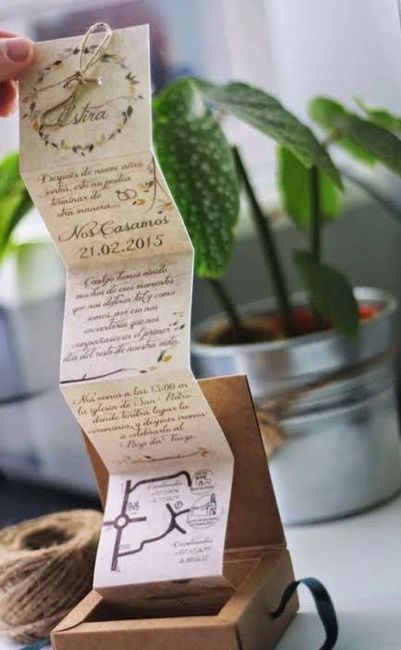 Estira
Después de nueve años
juntos, esto no podía
terminar de
otra manera...
Nos Casamos
21.02.2015
hemos vivido
muchos de esos momentos
que nos definen tal y como
somos, por eso nos
encantaría que nos
acompañases en el primer
día del resto de nuestra vida.
Nos vemos a las 13:00 en
la iglesia de San Pedro
donde tendrá lugar la
ceremonia, y después iremos
a celebrarlo al
Pazo da Touza.
M